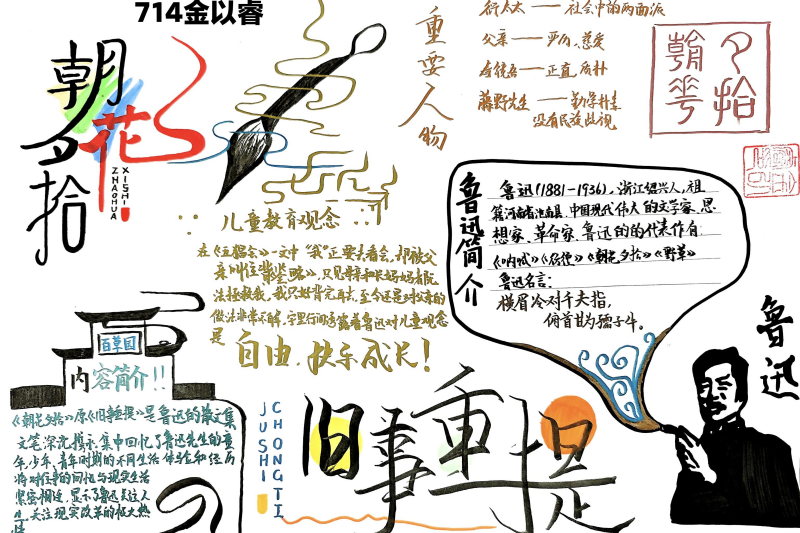 714金以睿
朝花夕拾
ZHAOHUA
XISHI
重要人物
衍太太——社会中的两面派
父亲——严厉、慈爱
寿镜吾——正直、质朴
藤野先生——勤学朴素
没有民族歧视
朝花夕拾
儿童教育观念
在《五猖会》一文中“我”正要去看会,却被父
亲叫住背《鉴略》,只见母亲和长妈妈都无
法拯救我,我只好背完再去,至今还是对父亲的
做法非常不解,字里行间透露着鲁迅对儿童观念
是自由、快乐成长!
鲁迅简介
鲁迅(1881-1936),浙江绍兴人,祖
籍河南省汝南县,中国现代伟大的文学家、思
想家、革命家,鲁迅的的代表作有
《呐喊》《彷徨》《朝花夕拾》《野草》
鲁迅名言:
横眉冷对千夫指,
俯首甘为孺子牛。
鲁迅
百草园
内容简介!!
《朝花夕拾》原《旧事重提》是鲁迅的散文集
文笔深沉隽永,集中回忆了鲁迅先生的童
年,少年,青年时期的不同生活体验和经历
将对往事的回忆与现实生活
紧密相连,显示了鲁迅关注人
生,关注现实改革的极大热
情
JIUSHI
CHONGTI
旧事重提